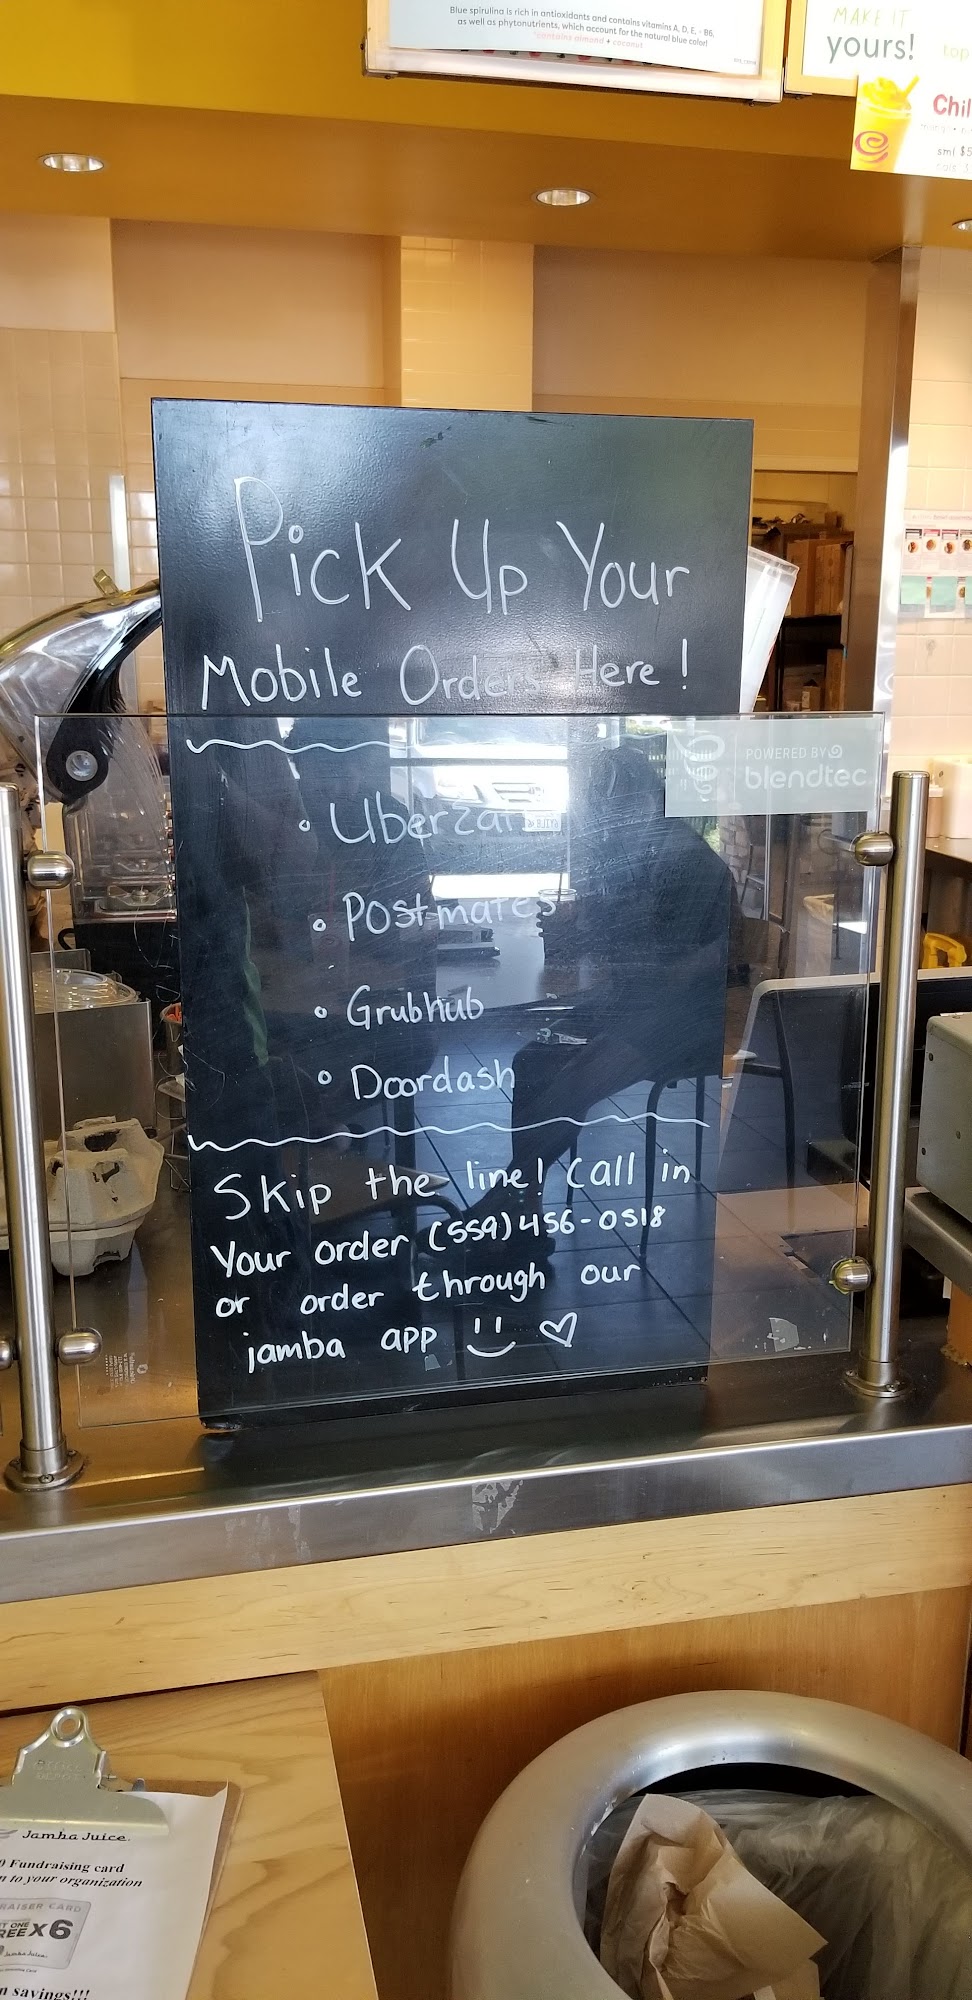 Blue spirulina is rich in antioxidants and contains vitamins A, D, E, + B6,
as well as phytonutrients, which account for the natural blue color!
*contains almond + coconut
MAKE IT
yours!
top
Chil
sml $5
Pick Up Your
Mobile Orders Here!
POWERED BY
blendtec
• Postmates
• Grubhub
• Doordash
Skip the line! Call in
Your order (559)456-0518
or order through our
jamba app
Jamba Juice
Fundraising card
n to your organization
RAISER CARD
ONE
REE X 6
n savings!!!